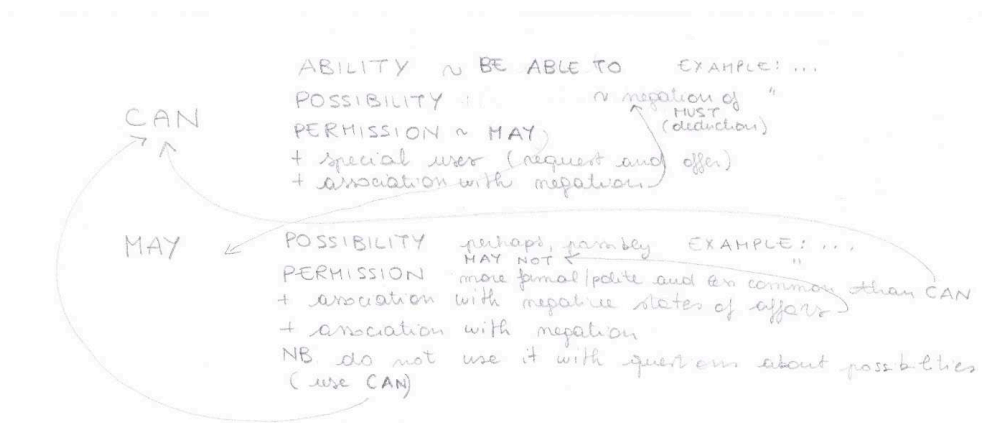 ABILITY ~ BE ABLE TO EXAMPLE: ...
POSSIBILITY ~ negation of "
MUST
CAN
(deduction)
PERMISSION ~ MAY
+ special uses (request and offer)
+ association with negation
MAY POSSIBILITY perhaps, possibly EXAMPLE: ...
MAY NOT "
PERMISSION more formal/polite and less common than CAN
+ association with negative states of affairs
+ association with negation
NB do not use it with questions about possibilities
(use CAN)